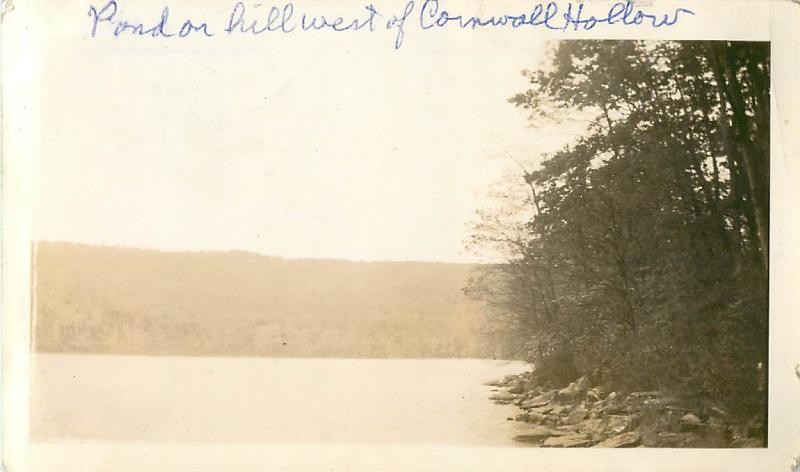 Pond on hill west of Cornwall Hollow